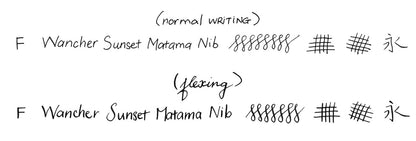 (normal WRITING)
F Wancher Sunset Matama Nib 永
(flexing)
F Wancher Sunset Matama Nib 永